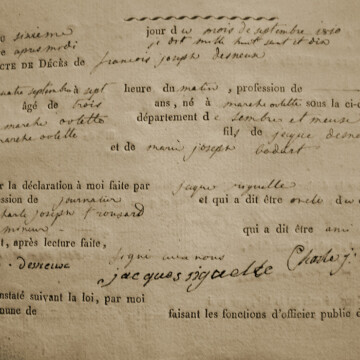 sixieme jour du mois de septembre 1810
apres modi dit mille huit cent et dix
CTE DE DÉCÈS de françois joseph desneux
septembre à sept heure du matin, profession de
âgé de trois ans, né à marche ovlette sous la ci-d
marche ovlette département de sombre et meuse
marche ovlette fils de
et de marie joseph
r la déclaration à moi faite par jaque riguelle
ssion de journalier et qui a dit être oncle du
charle joseph trousard
mineur et qui a dit être ami
t, après lecture faite, signé avec nous
desneuse jacques riguelle Charle j.
nstaté suivant la loi, par moi
mune de faisant les fonctions d'officier public d